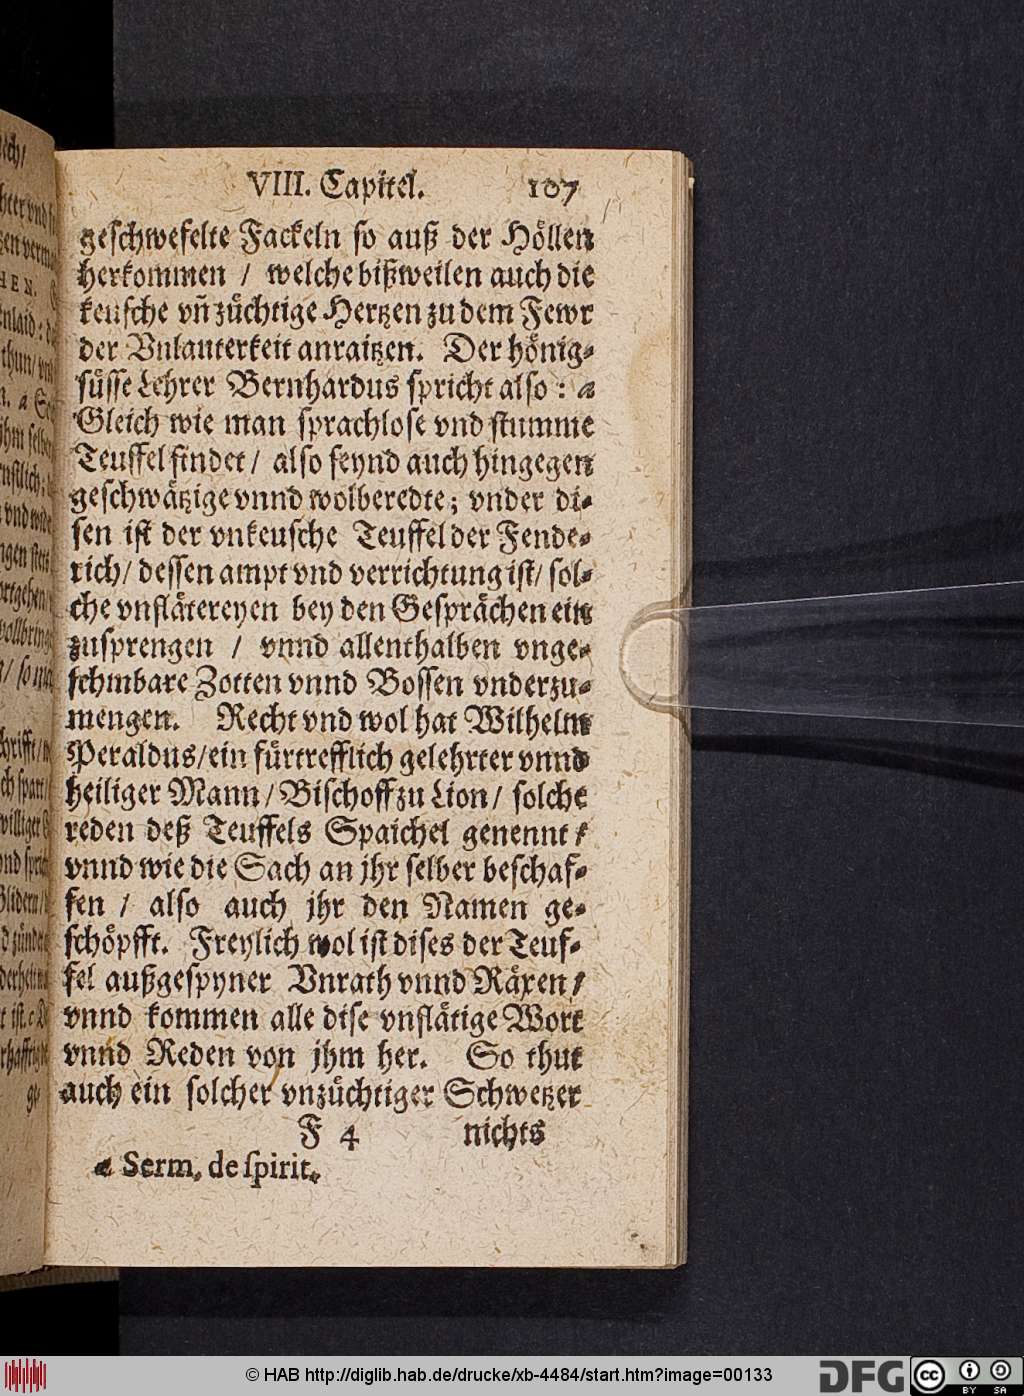 VIII. Capitel. 107
geschwefelte Fackeln so auß der Höllen
herkommen / welche bißweilen auch die
keusche vñ züchtige Hertzen zu dem Fewr
der Vnlauterkeit anraitzen. Der hönig-
süsse Lehrer Bernhardus spricht also : a
Gleich wie man sprachlose vnd stumme
Teuffel findet / also seynd auch hingegen
geschwätzige vnnd wolberedte; vnder di-
sen ist der vnkeusche Teuffel der Fende-
rich/ dessen ampt vnd verrichtung ist/ sol-
che vnflätereyen bey den Gesprächen ein
zusprengen / vnnd allenthalben vnge-
schmbare Zotten vnnd Bossen vnderzu-
mengen. Recht vnd wol hat Wilhelm
Peraldus/ein fürtrefflich gelehrter vnnd
heiliger Mann/ Bischoff zu Lion/ solche
reden deß Teuffels Spaichel genennt /
vnnd wie die Sach an jhr selber beschaf-
fen / also auch jhr den Namen ge-
schöpfft. Freylich wol ist dises der Teuf-
fel außgespyner Vnrath vnnd Räxen /
vnnd kommen alle dise vnflätige Wort
vnnd Reden von jhm her. So thut
auch ein solcher vnzüchtiger Schwetzer
F 4 nichts
a Serm. de spirit.
© HAB http://diglib.hab.de/drucke/xb-4484/start.htm?image=00133
DFG
CC BY SA